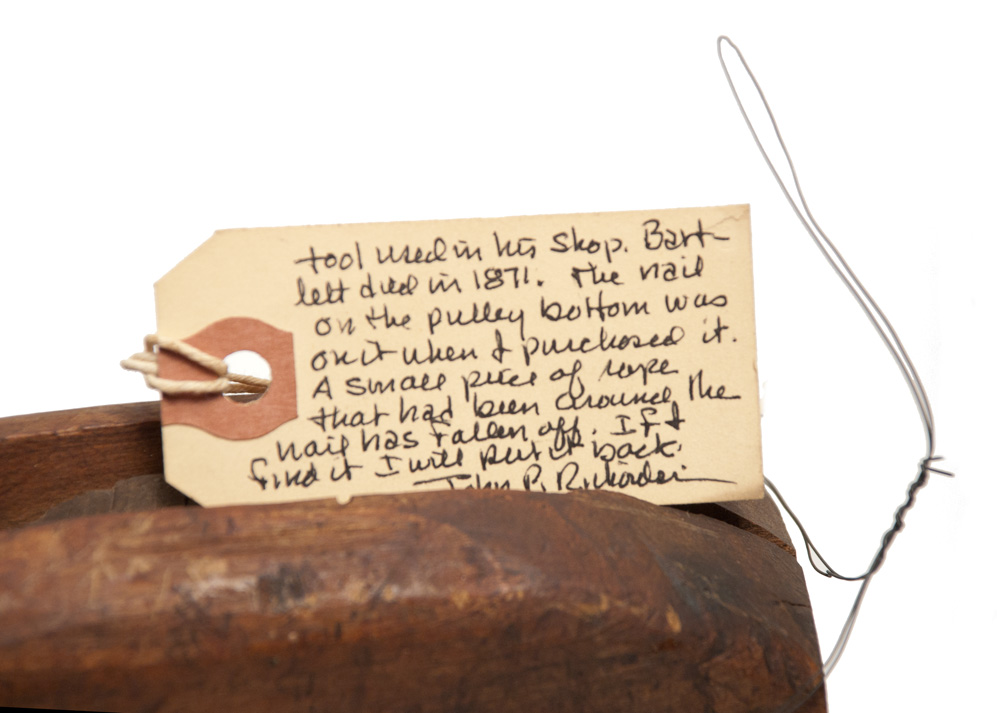 tool used in his shop. Bart-
lett died in 1871. The nail
on the pulley bottom was
on it when I purchased it.
A small piece of rope
that had been around the
nail has fallen off. If I
find it I will put it back.
John P.